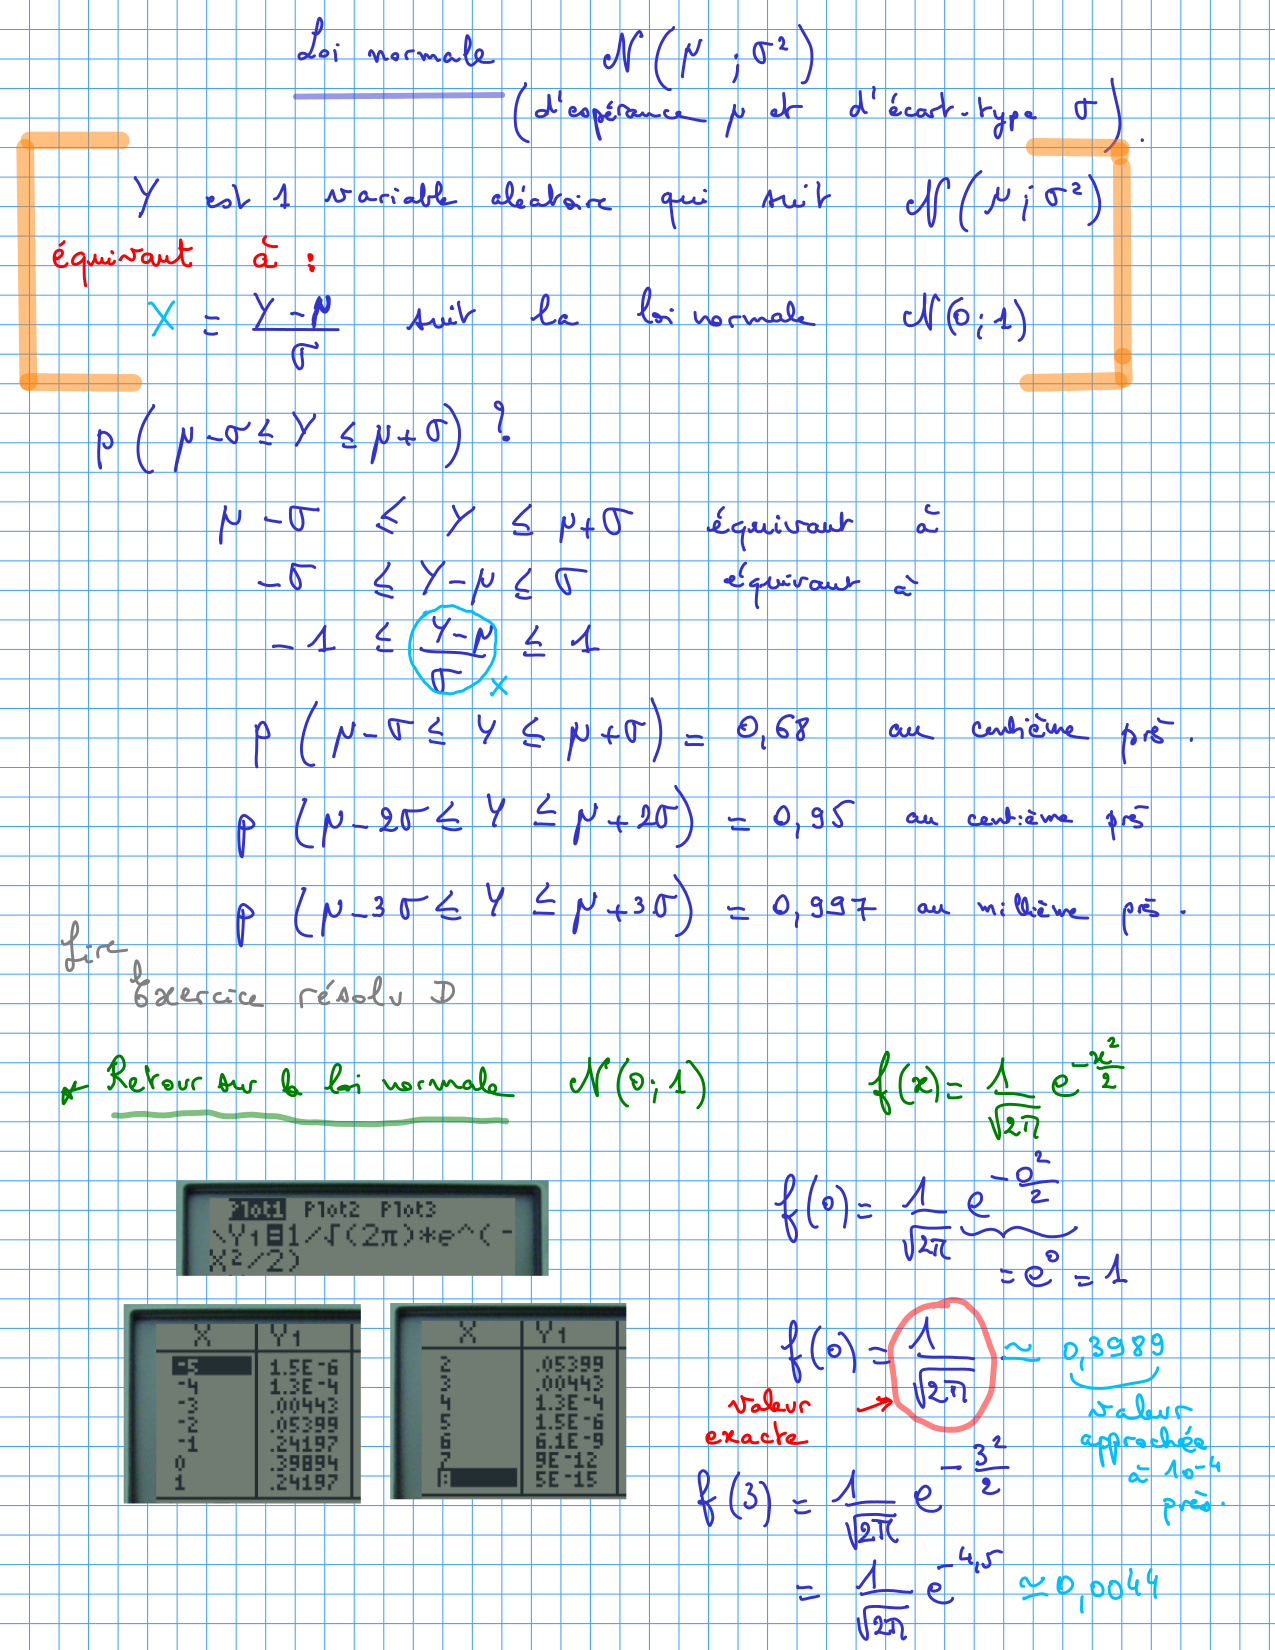 Loi normale N(μ ; σ²)
(d'espérance μ et d'écart-type σ).
Y est 1 variable aléatoire qui suit N(μ ; σ²)
équivaut à :
X = (Y − μ)/σ suit la loi normale N(0 ; 1)
p(μ − σ ≤ Y ≤ μ + σ) ?
μ − σ ≤ Y ≤ μ + σ équivaut à
− σ ≤ Y − μ ≤ σ équivaut à
− 1 ≤ (Y − μ)/σ ≤ 1
X
p(μ − σ ≤ Y ≤ μ + σ) = 0,68 au centième près.
p(μ − 2σ ≤ Y ≤ μ + 2σ) = 0,95 au centième près
p(μ − 3σ ≤ Y ≤ μ + 3σ) = 0,997 au millième près.
Lire
l'Exercice résolu D
* Retour sur la loi normale N(0 ; 1) f(x) = 1/√(2π) e^(−x²/2)
Plot1 Plot2 Plot3
\Y1=1/√(2π)*e^(-
X²/2)
f(0) = 1/√(2π) e^(−0²/2)
= e^0 = 1
X Y1
-5 1.5E-6
-4 1.3E-4
-3 .00443
-2 .05399
-1 .24197
0 .39894
1 .24197
X Y1
2 .05399
3 .00443
4 1.3E-4
5 1.5E-6
6 6.1E-9
7 9E-12
8 5E-15
f(0) = 1/√(2π) ≃ 0,3989
valeur
exacte
valeur
approchée
à 10^-4
près.
f(3) = 1/√(2π) e^(−3²/2)
= 1/√(2π) e^(−4,5) ≃ 0,0044